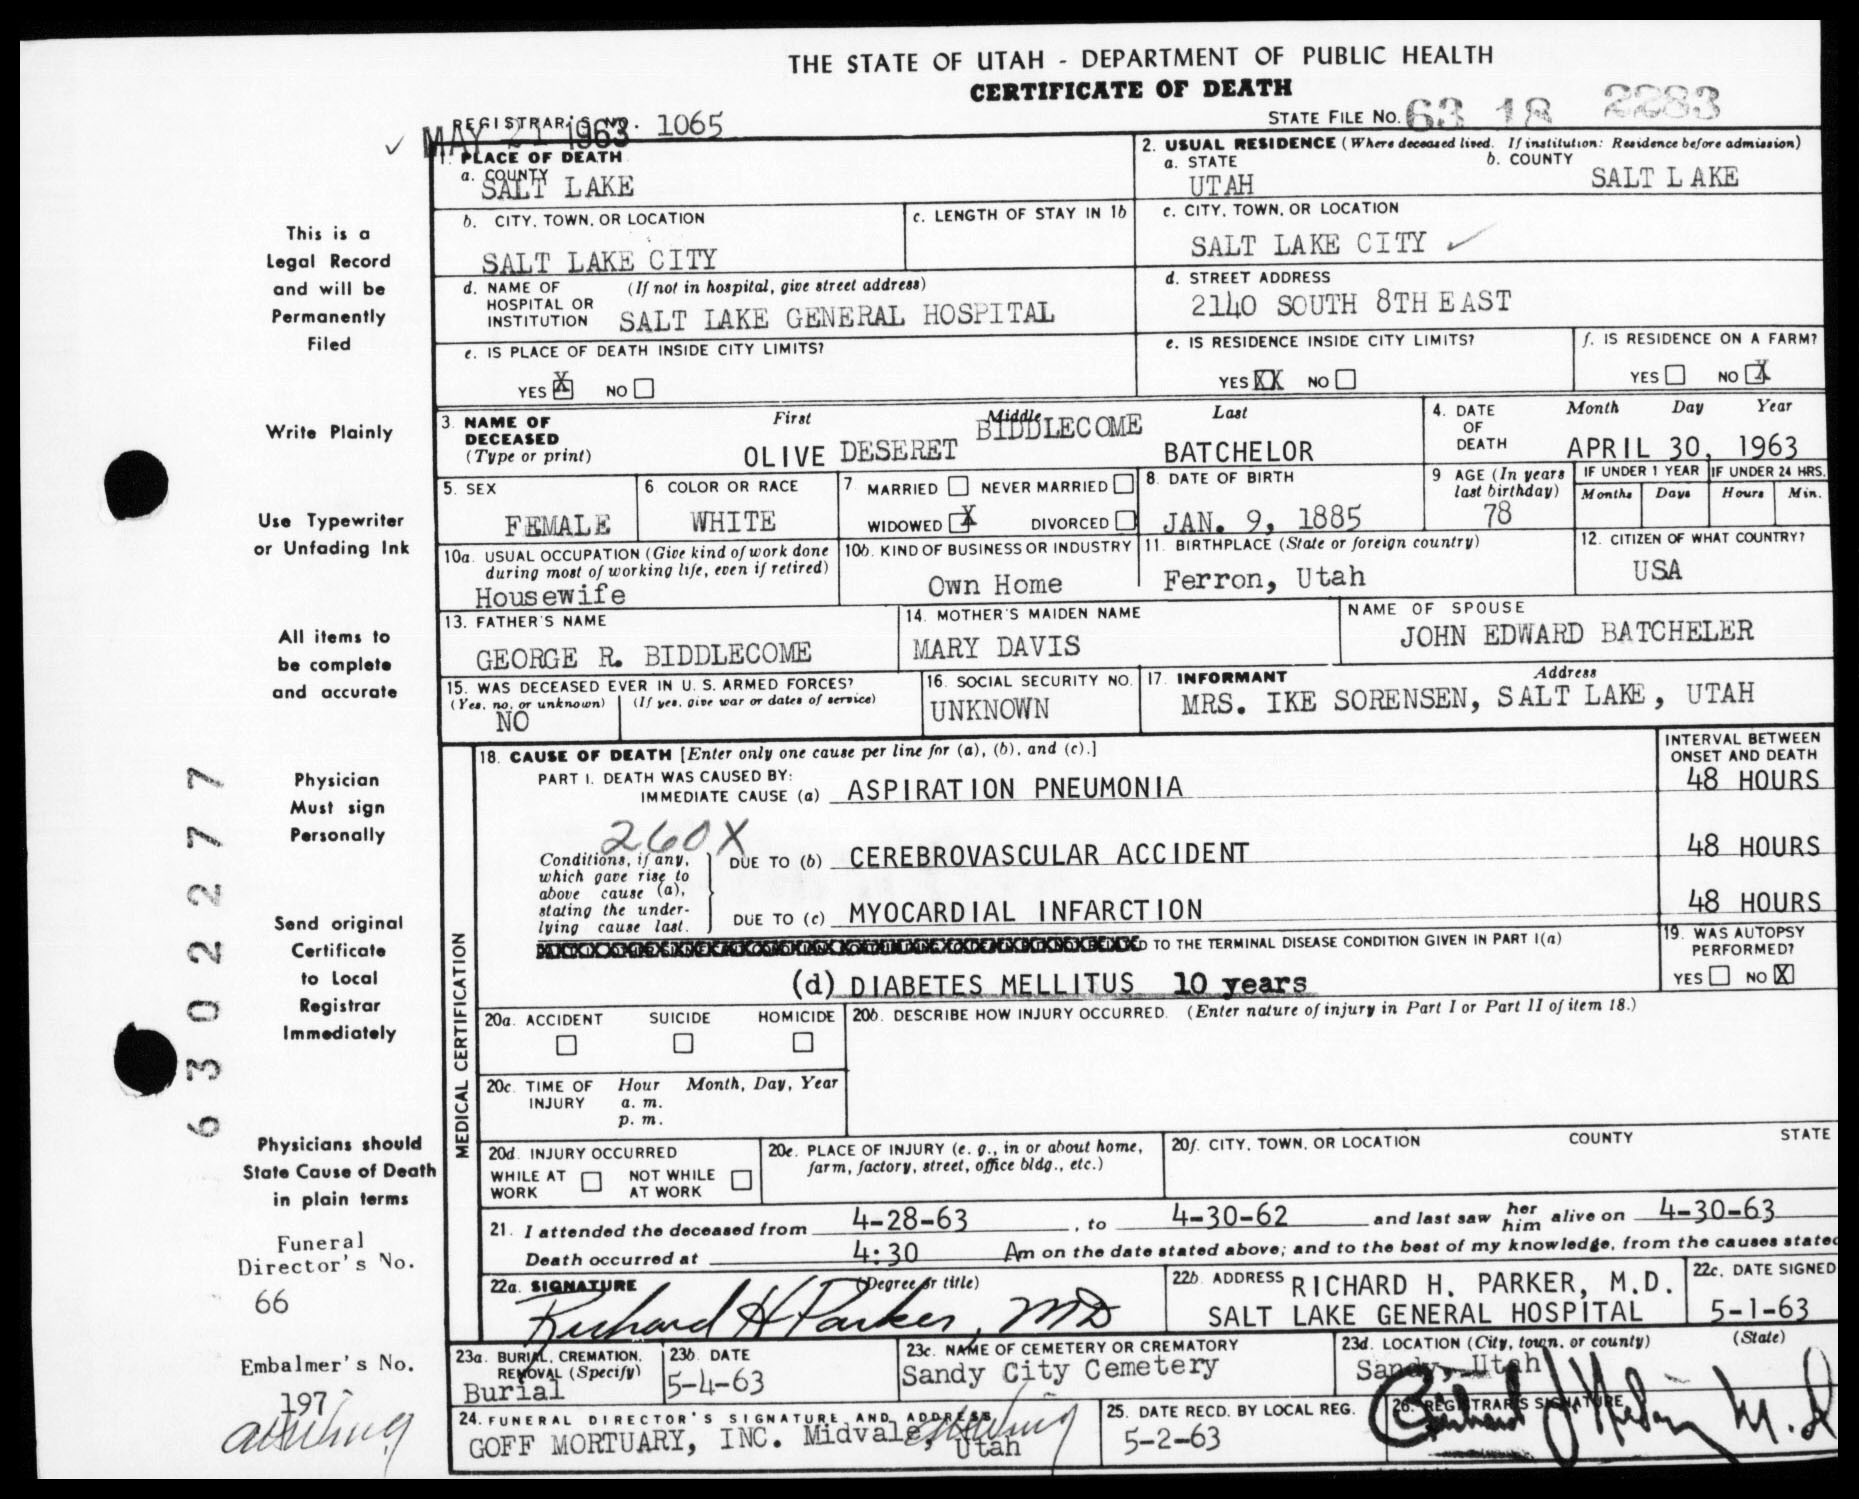 THE STATE OF UTAH - DEPARTMENT OF PUBLIC HEALTH
CERTIFICATE OF DEATH
STATE FILE No. 63 18 2283
REGISTRAR'S NO. 1065
MAY 21 1963
1. PLACE OF DEATH
a. COUNTY
SALT LAKE
2. USUAL RESIDENCE (Where deceased lived. If institution: Residence before admission)
a. STATE
UTAH
b. COUNTY
SALT LAKE
b. CITY, TOWN, OR LOCATION
SALT LAKE CITY
c. LENGTH OF STAY IN 1b
c. CITY, TOWN, OR LOCATION
SALT LAKE CITY
d. NAME OF HOSPITAL OR INSTITUTION (If not in hospital, give street address)
SALT LAKE GENERAL HOSPITAL
d. STREET ADDRESS
2140 SOUTH 8TH EAST
e. IS PLACE OF DEATH INSIDE CITY LIMITS?
YES X NO
e. IS RESIDENCE INSIDE CITY LIMITS?
YES XX NO
f. IS RESIDENCE ON A FARM?
YES NO X
3. NAME OF DECEASED (Type or print)
First Middle Last
OLIVE DESERET BIDDLECOME BATCHELOR
4. DATE OF DEATH
Month Day Year
APRIL 30, 1963
5. SEX
FEMALE
6. COLOR OR RACE
WHITE
7. MARRIED NEVER MARRIED
WIDOWED X DIVORCED
8. DATE OF BIRTH
JAN. 9, 1885
9 AGE (In years last birthday)
78
IF UNDER 1 YEAR
Months Days
IF UNDER 24 HRS.
Hours Min.
10a. USUAL OCCUPATION (Give kind of work done during most of working life, even if retired)
Housewife
10b. KIND OF BUSINESS OR INDUSTRY
Own Home
11. BIRTHPLACE (State or foreign country)
Ferron, Utah
12. CITIZEN OF WHAT COUNTRY?
USA
13. FATHER'S NAME
GEORGE R. BIDDLECOME
14. MOTHER'S MAIDEN NAME
MARY DAVIS
NAME OF SPOUSE
JOHN EDWARD BATCHELER
15. WAS DECEASED EVER IN U. S. ARMED FORCES?
(Yes, no, or unknown) (If yes, give war or dates of service)
NO
16. SOCIAL SECURITY NO.
UNKNOWN
17. INFORMANT Address
MRS. IKE SORENSEN, SALT LAKE, UTAH
18. CAUSE OF DEATH [Enter only one cause per line for (a), (b), and (c).]
INTERVAL BETWEEN ONSET AND DEATH
PART I. DEATH WAS CAUSED BY:
IMMEDIATE CAUSE (a) ASPIRATION PNEUMONIA 48 HOURS
260X
Conditions, if any, which gave rise to above cause (a), stating the underlying cause last.
DUE TO (b) CEREBROVASCULAR ACCIDENT 48 HOURS
DUE TO (c) MYOCARDIAL INFARCTION 48 HOURS
TO THE TERMINAL DISEASE CONDITION GIVEN IN PART I(a)
(d) DIABETES MELLITUS 10 years
19. WAS AUTOPSY PERFORMED?
YES NO X
MEDICAL CERTIFICATION
20a. ACCIDENT SUICIDE HOMICIDE
20b. DESCRIBE HOW INJURY OCCURRED. (Enter nature of injury in Part I or Part II of item 18.)
20c. TIME OF INJURY
Hour Month, Day, Year
a. m.
p. m.
20d. INJURY OCCURRED
WHILE AT WORK NOT WHILE AT WORK
20e. PLACE OF INJURY (e. g., in or about home, farm, factory, street, office bldg., etc.)
20f. CITY, TOWN, OR LOCATION COUNTY STATE
21. I attended the deceased from 4-28-63, to 4-30-62 and last saw her him alive on 4-30-63
Death occurred at 4:30 Am on the date stated above; and to the best of my knowledge, from the causes stated
22a. SIGNATURE (Degree or title)
Richard H Parker, MD
22b. ADDRESS RICHARD H. PARKER, M.D.
SALT LAKE GENERAL HOSPITAL
22c. DATE SIGNED
5-1-63
23a. BURIAL, CREMATION, REMOVAL (Specify)
Burial
23b. DATE
5-4-63
23c. NAME OF CEMETERY OR CREMATORY
Sandy City Cemetery
23d. LOCATION (City, town, or county) (State)
Sandy, Utah
24. FUNERAL DIRECTOR'S SIGNATURE AND ADDRESS
GOFF MORTUARY, INC. Midvale, Utah
25. DATE RECD. BY LOCAL REG.
5-2-63
26. REGISTRAR'S SIGNATURE
This is a
Legal Record
and will be
Permanently
Filed
Write Plainly
Use Typewriter
or Unfading Ink
All items to
be complete
and accurate
Physician
Must sign
Personally
Send original
Certificate
to Local
Registrar
Immediately
Physicians should
State Cause of Death
in plain terms
Funeral
Director's No.
66
Embalmer's No.
197
6302277